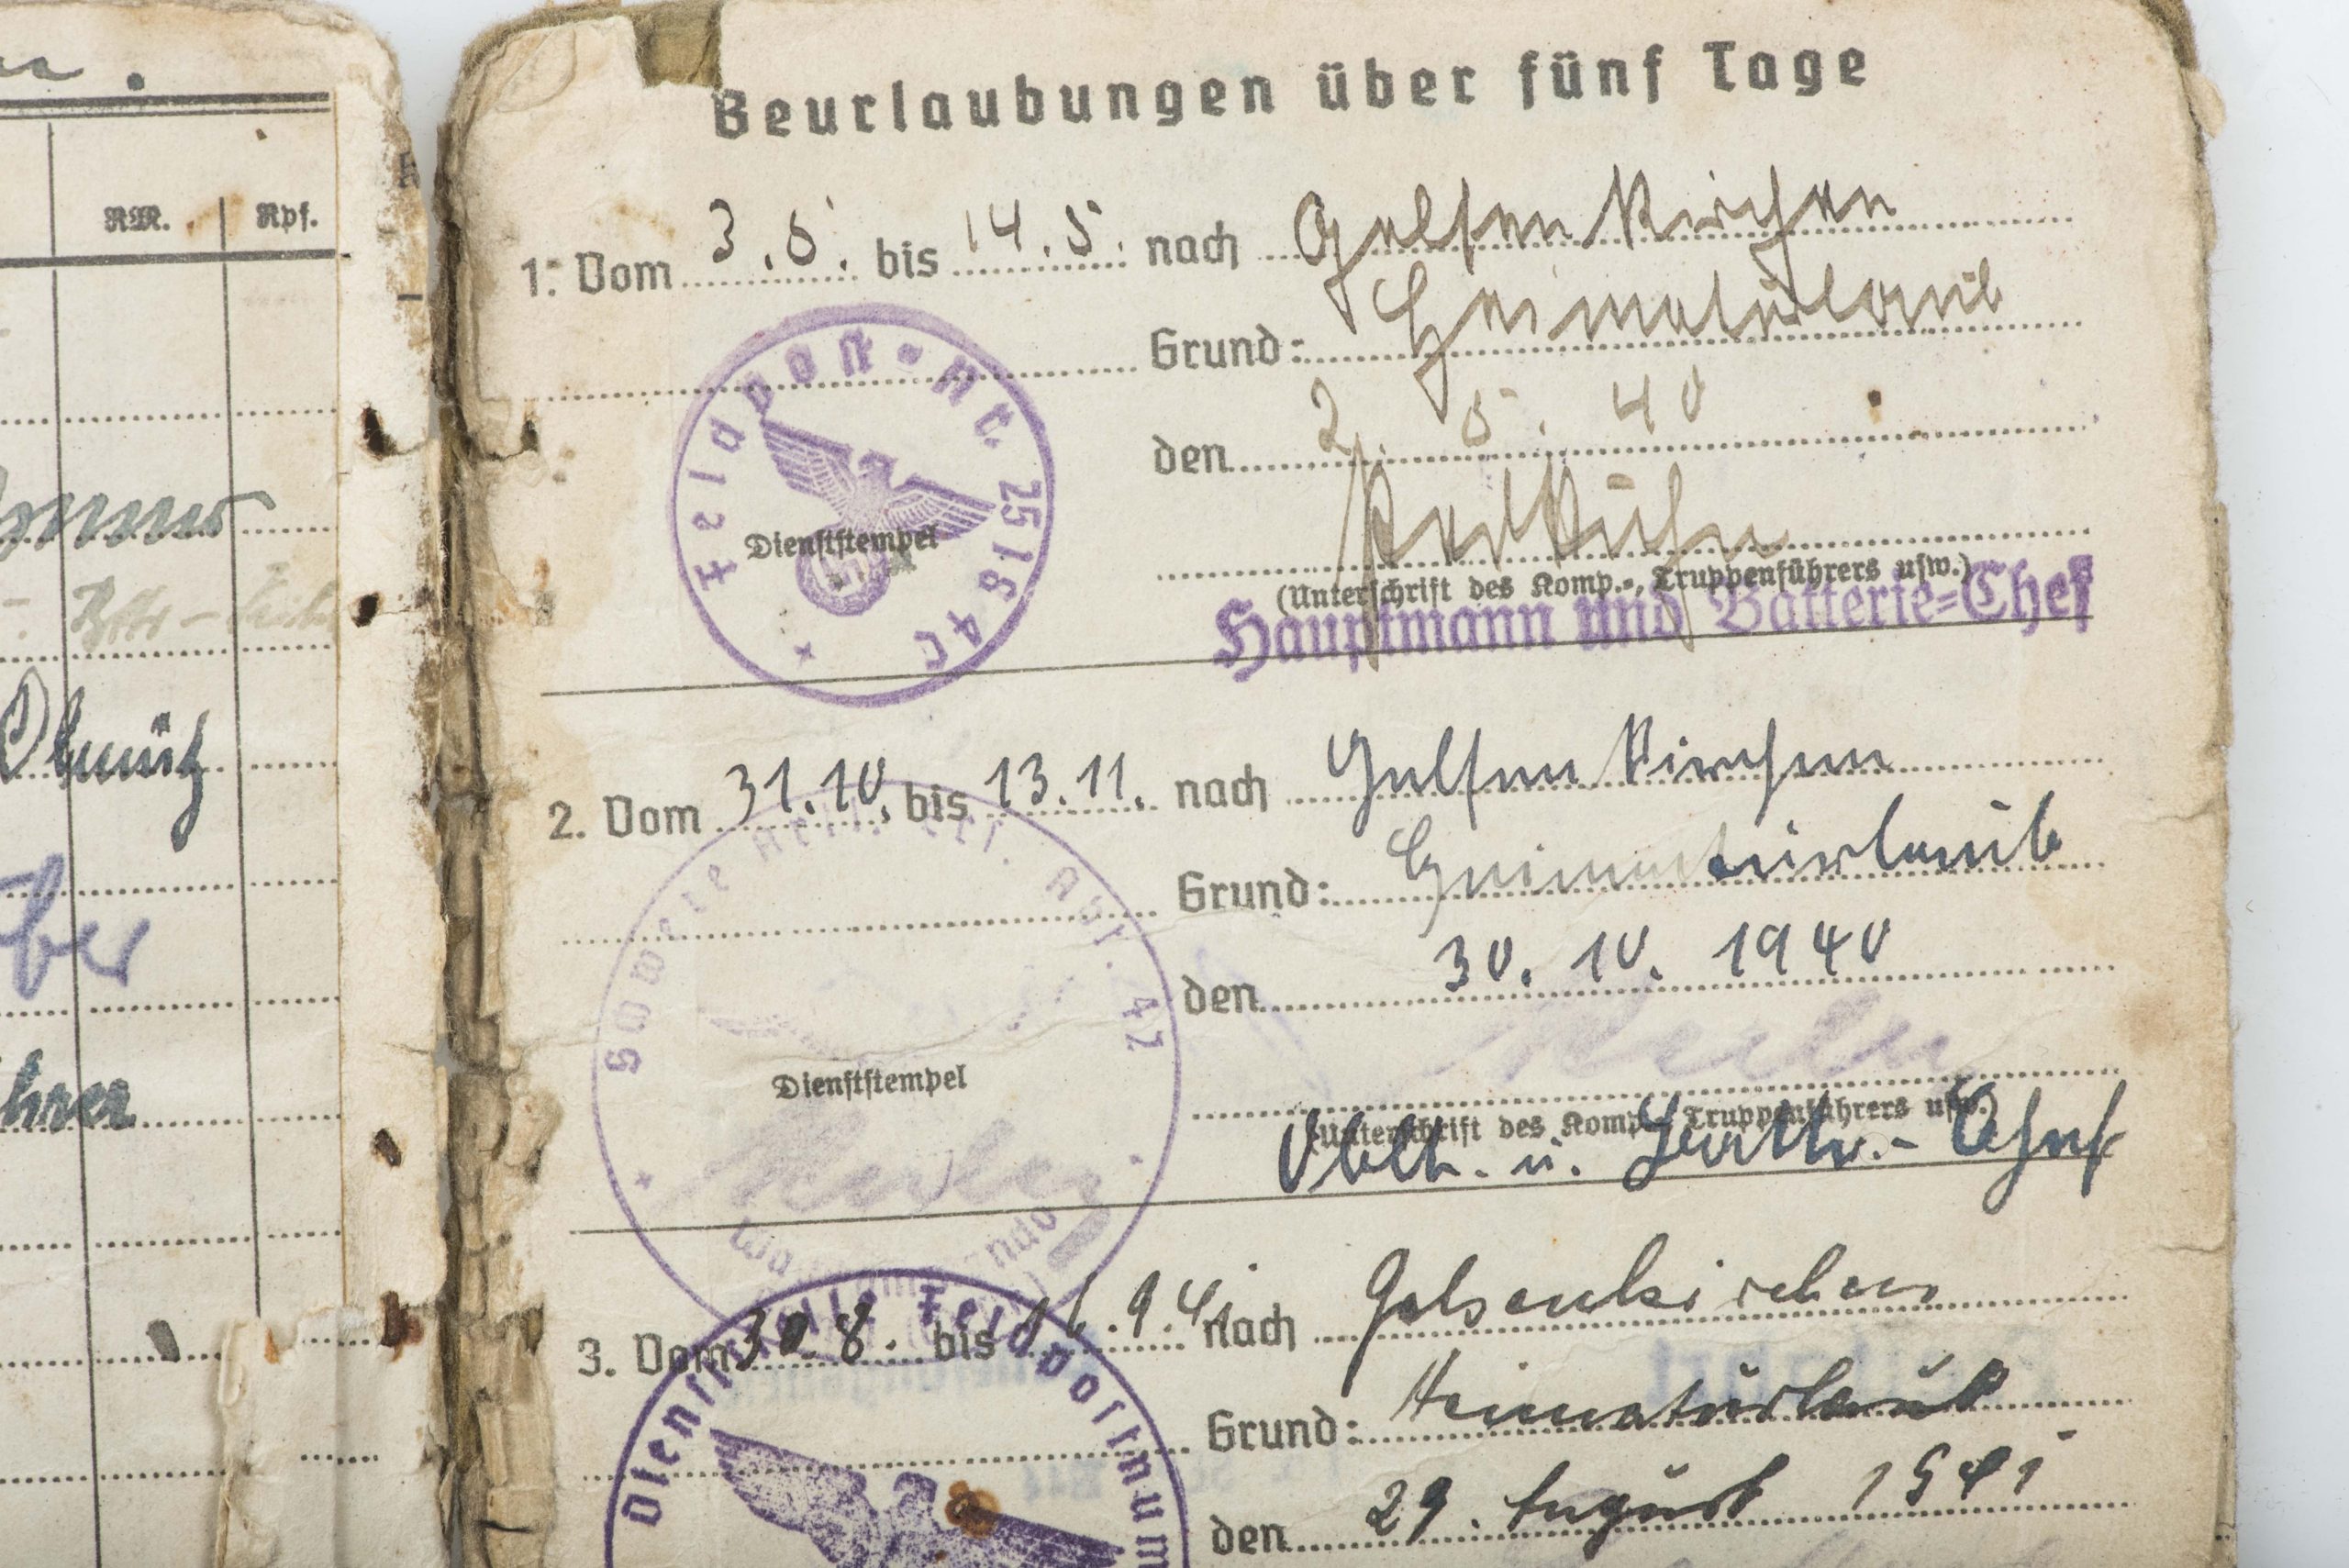 RM. Rpf.
Olmütz
Beurlaubungen über fünf Tage
1. Vom 3.5. bis 14.5. nach Gelsenkirchen
Grund: Heimaturlaub
den 2. 5. 40
Feldpost * Nr. 25184C
Dienststempel
(Unterschrift des Komp.-, Truppenführers usw.)
Hauptmann und Batterie-Chef
2. Vom 31.10. bis 13.11. nach Gelsenkirchen
Grund: Heimaturlaub
den 30. 10. 1940
Abt. 47
Dienststempel
(Unterschrift des Komp.-, Truppenführers usw.)
Oblt. u. Battr.-Chef
3. Vom 30 8. bis 16.9.41 nach Gelsenkirchen
Grund: Heimaturlaub
den 29. August 1941
Dienststelle Feldpostnum